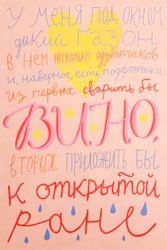 У МЕНЯ ПОД ОКНОМ
дикий ГАЗОН
В НЁМ НЕСКОЛЬКО ОДУВАНЧИКОВ
и, наверное, есть подорожник
ИЗ ПЕРВЫХ СВАРИТЬ БЫ
ВИНО,
ВТОРЫХ ПРИЛОЖИТЬ БЫ
К ОТКРЫТОЙ
РАНЕ